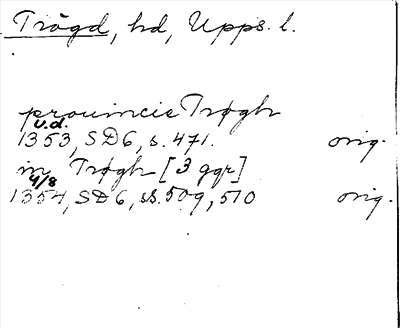 Trögd, hd, Upps. l.
prouincie Trøgh
u.d.
1353, SD 6, s. 471. orig.
in Trøgh [3 ggr]
4/8
1354, SD 6, ss. 509, 510 orig.